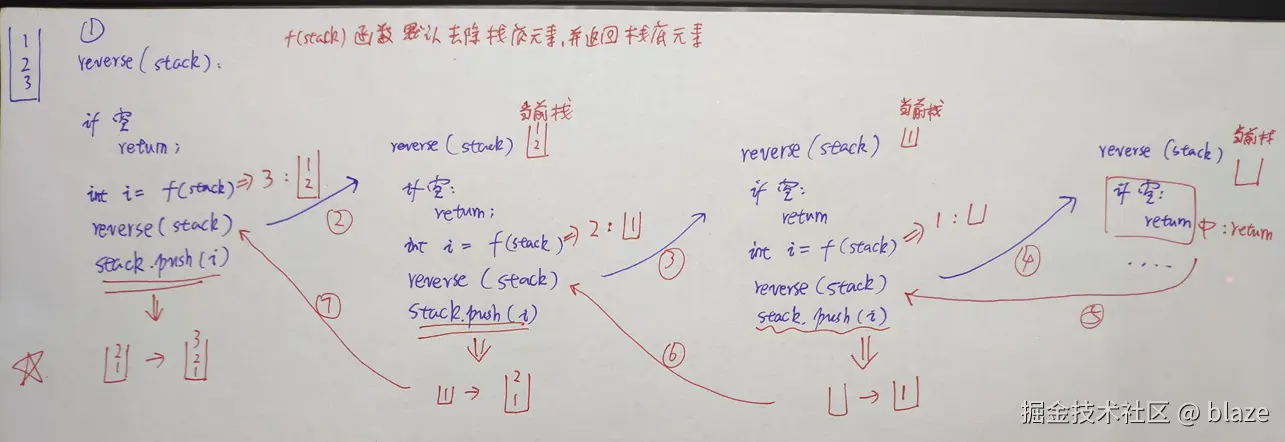 f(stack) 函数默认去除栈底元素,并返回栈底元素
1
2
3
①
reverse(stack):
if 空
return;
int i = f(stack) ⇒ 3 :
1
2
reverse(stack)
stack.push(i)
2
1
→
3
2
1
②
当前栈
1
2
reverse(stack)
if 空:
return;
int i = f(stack) ⇒ 2 : 1
reverse (stack)
stack.push(i)
1 →
2
1
③
当前栈
1
reverse(stack)
if 空:
return
int i = f(stack) ⇒ 1 :
reverse(stack)
stack.push(i)
→ 1
④
当前栈
reverse (stack)
if 空:
return
中:return
....
⑤
⑥
⑦
掘金技术社区 @ blaze